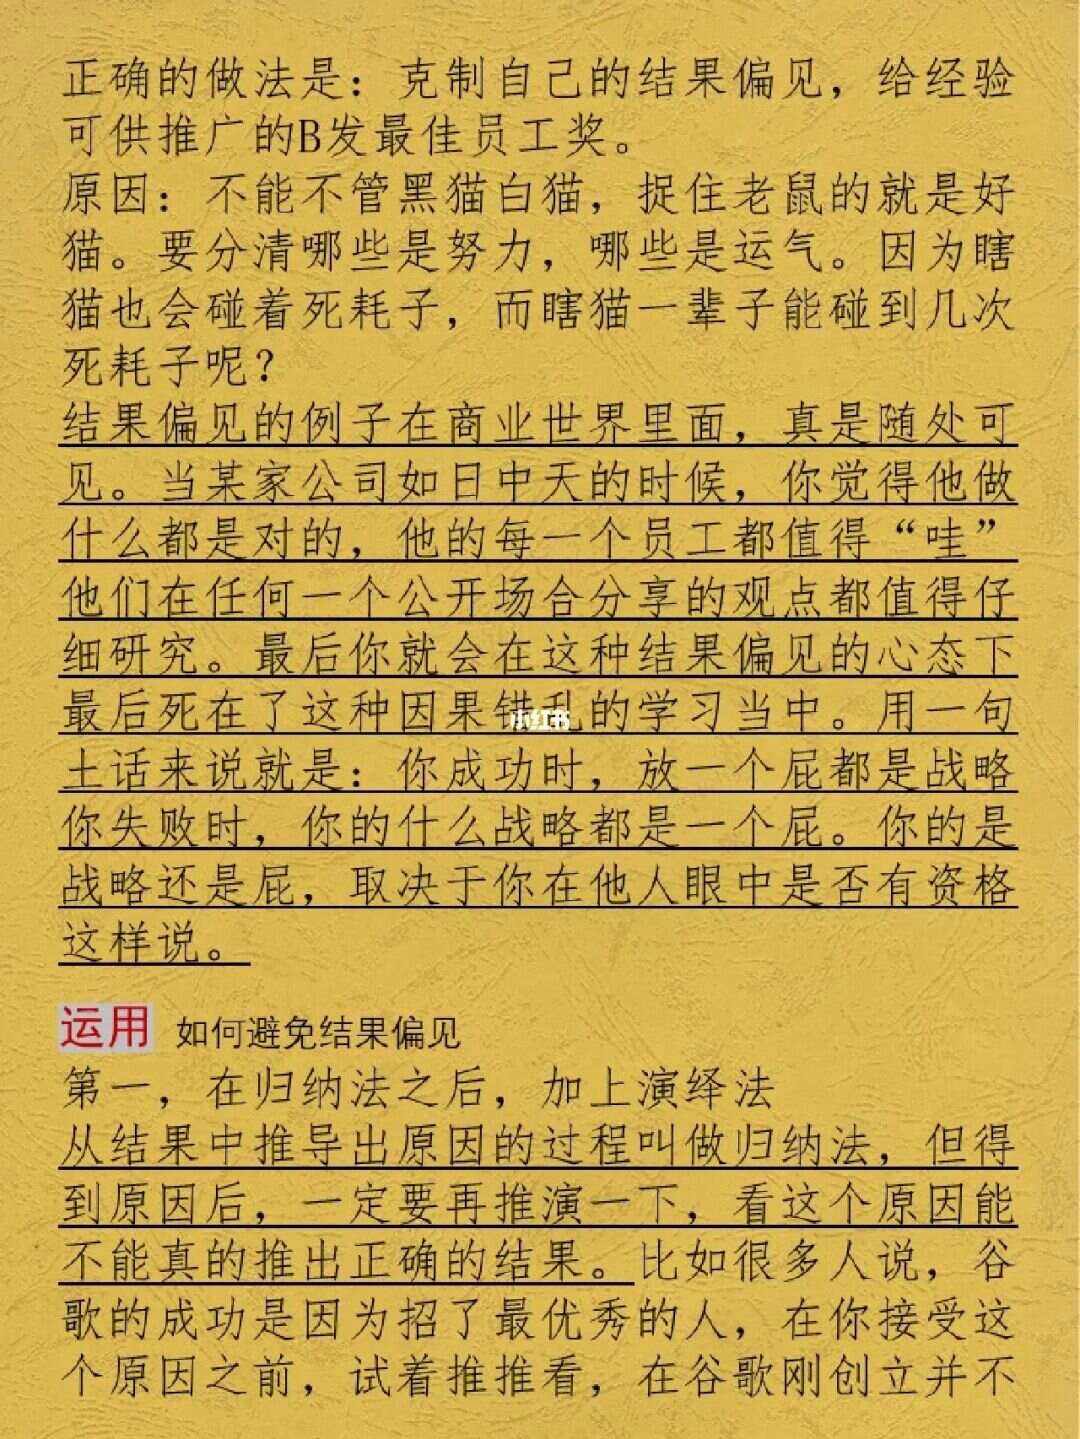 正确的做法是：克制自己的结果偏见，给经验
可供推广的B发最佳员工奖。
原因：不能不管黑猫白猫，捉住老鼠的就是好
猫。要分清哪些是努力，哪些是运气。因为瞎
猫也会碰着死耗子，而瞎猫一辈子能碰到几次
死耗子呢？
结果偏见的例子在商业世界里面，真是随处可
见。当某家公司如日中天的时候，你觉得他做
什么都是对的，他的每一个员工都值得“哇”
他们在任何一个公开场合分享的观点都值得仔
细研究。最后你就会在这种结果偏见的心态下
最后死在了这种因果错乱的学习当中。用一句
小红书
土话来说就是：你成功时，放一个屁都是战略
你失败时，你的什么战略都是一个屁。你的是
战略还是屁，取决于你在他人眼中是否有资格
这样说。
运用 如何避免结果偏见
第一，在归纳法之后，加上演绎法
从结果中推导出原因的过程叫做归纳法，但得
到原因后，一定要再推演一下，看这个原因能
不能真的推出正确的结果。比如很多人说，谷
歌的成功是因为招了最优秀的人，在你接受这
个原因之前，试着推推看，在谷歌刚创立并不